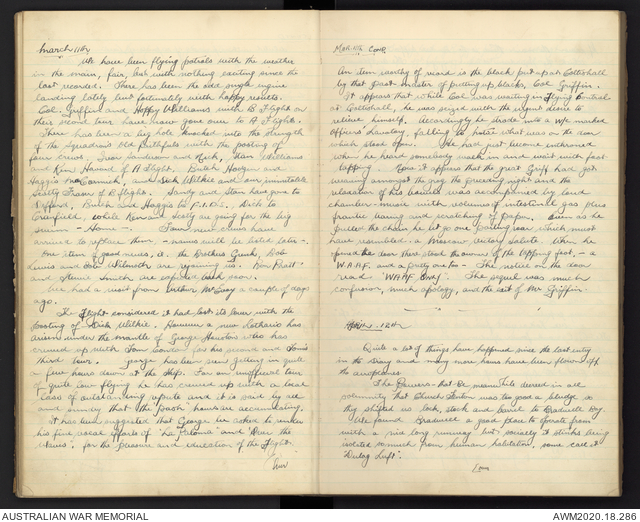 March 11th
We have been flying patrols with the weather
in the main, fair, but with nothing exciting since the
last recorded. There has been the odd single engine
landing lately but fortunately with happy results.
Col. Griffin and Hoppy Williams with B Flight on
their second tour have now gone over to A Flight.
There has been a big hole knocked into the strength
of the Squadron's old faithfuls with the posting of
four crews. Ivor Sanderson and Nick, Stan Williams
and Ken Havord of A Flight. Butch Hodgen and
Haggis McCormick, and Dick Wilkie and our inimitable
Scotty Fraser of B Flight. Sandy and Stan have gone to
Defford, Butch and Haggis to F.I.U., Dick to
Cranfield, while Ken and Scotty are going for the big
swim - Home - Four new crews have
arrived to replace them, - names will be listed later -.
One item of good news, i.e. the brothers Gunks, Bob
Lewis and Bob Wilmoth are rejoining us. Ron Pratt
and Ernie Smith are expected real soon.
We had a visit from Arthur McEvoy a couple of days
ago.
The Flight considered it had lost its lover with the
posting of Dick Wilkie. However a new Lothario has
arisen under the mantle of George Houston who has
crewed up with Tom Gowing for his second and Tom's
third tour. George has been seen getting in quite
a few hours down at the Ship. For an unofficial tour
of quite low flying he has crewed up with a local
lass of outstanding repute and it is said by all
and sundry that the dark hours are accumulating.
It has been suggested that George be asked to render
his fine vocal efforts of 'La Paloma' and 'Over the
Waves' for the pleasure and education of the Flight.
Over
March 11th Cont.
An item worthy of record is the black put up at Coltishall
by that past master of putting up blacks, Col. Griffin.
It appears that while Col. was waiting in Flying Control
at Coltishall, he was seized with the urgent desire to
relieve himself. Accordingly he strode into a W/C marked
Officers Lavatory, failing to notice what was on the door
which stood open. He had just become enthroned
when he heard somebody walk in and wait with foot
tapping. Now it appears that the great Griff had got
weaving amongst the veg the previous night and the
relaxation of his bowels was accompanied by loud
chamber-music with volumes of intestinal gas plus
frantic tearing and scratching of paper. Even as he
pulled the chain he let go one parting roar which must
have resembled a Moscow victory salute. When he
opened the door there stood the owner of the tapping foot, - a
W.A.A.F. and a pretty one too - The notice on the door
read - 'WAAF Only'. The sequel was much
confusion, much apology, and the exit of Mr Griffin.
April 12th
Quite a lot of things have happened since the last entry
in the Diary and many more hours have been flown off
the aeroplanes.
The Powers-that-Be meanwhile decreed in all
solemnity that Church Fenton was too good a bludge so
they shifted us lock, stock and barrel to Bradwell Bay.
We found Bradwell a good place to operate from
with a nice long runway but socially it stinks being
isolated so much from human habitation, some call it
'Dulag Luft'.
Over
AUSTRALIAN WAR MEMORIAL
AWM2020.18.286